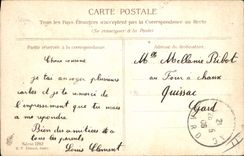 CARTE POSTALE
Tous les Pays Étrangers n'acceptent pas la Correspondance au Recto
(Se renseigner à la Poste)
Partie réservée à la correspondance.
Chère cousine
je t'ai envoyer plusieurs
cartes et je te montre
l'empressement que tu mets
a me repondre
Bien des amitiés à
tous tes parents
Louis Clement
Série 1292
Mlle Mellanie Ribot
au Four à chaux
Quissac
Gard